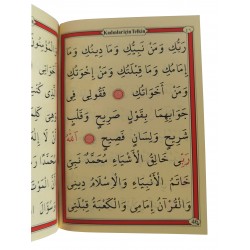 Kadınlar için Telkin
رَبُّكِ وَمَنْ نَبِيُّكِ وَمَا دِينُكِ وَمَا
اِمَامُكِ وَمَا قِبْلَتُكِ وَمَنْ اِخْوَتُكِ
وَمَنْ اَخَوَاتُكِ فَقُولِى فِى
جَوَابِهِمَا بِقَوْلٍ صَرِيحٍ وَقَلْبٍ
شَرِيحٍ وَلِسَانٍ فَصِيحٍ اَللهُ
رَبِّى خَالِقُ الْاَشْيَاءِ مُحَمَّدٌ نَبِيِّى
خَاتَمُ الْاَنْبِيَاءِ وَالْاِسْلَامُ دِينِى
وَالْقُرْآنُ اِمَامِى وَالْكَعْبَةُ قِبْلَتِى